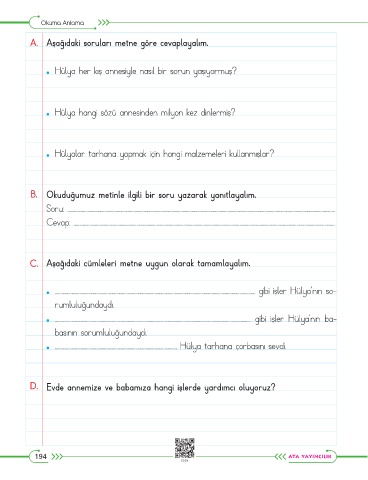 Okuma Anlama
A. Aşağıdaki soruları metne göre cevaplayalım.
• Hülya her kış annesiyle nasıl bir sorun yaşıyormuş?
• Hülya hangi sözü annesinden milyon kez dinlermiş?
• Hülyalar tarhana yapmak için hangi malzemeleri kullanmışlar?
B. Okuduğumuz metinle ilgili bir soru yazarak yanıtlayalım.
Soru:
Cevap:
C. Aşağıdaki cümleleri metne uygun olarak tamamlayalım.
• gibi işler Hülya'nın so-
rumluluğundaydı.
• gibi işler Hülya'nın ba-
basının sorumluluğundaydı.
• Hülya tarhana çorbasını sevdi.
D. Evde annemize ve babamıza hangi işlerde yardımcı oluyoruz?
194
ATA YAYINCILIK